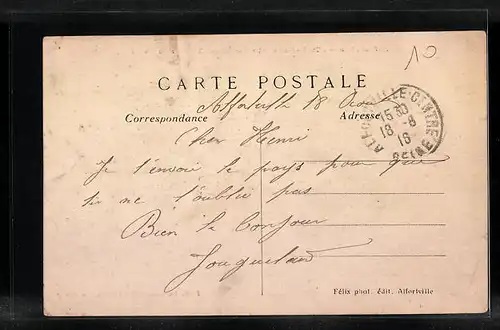 10
CARTE POSTALE
Alfortville 18 Aout
Correspondance
Adresse
ALFORTVILLE-CENTRE
15 30
18-8
16
SEINE
Cher Henri
Je t'envoie le pays pour que
tu ne l'oublie pas
Bien le Bonjour
Félix phot. édit. Alfortville